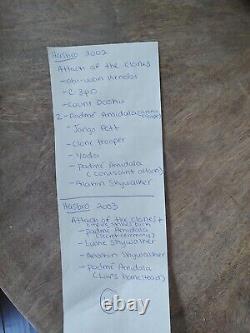 Hasbro 2002
Attack of the Clones
- Obi-wan Kenobi
- C-3PO
- Count Dooku
2 - Padmé Amidala
- Jango Fett
- Clone trooper
- Yoda
- padmé Amidala
(coruscant attack)
- Anakin Skywalker
Hasbro 2003
Attack of the clones &
Empire strikes back
- padmé Amidala
- Luke Skywalker
- Anakin Skywalker
- padmé Amidala
(Lars homestead)